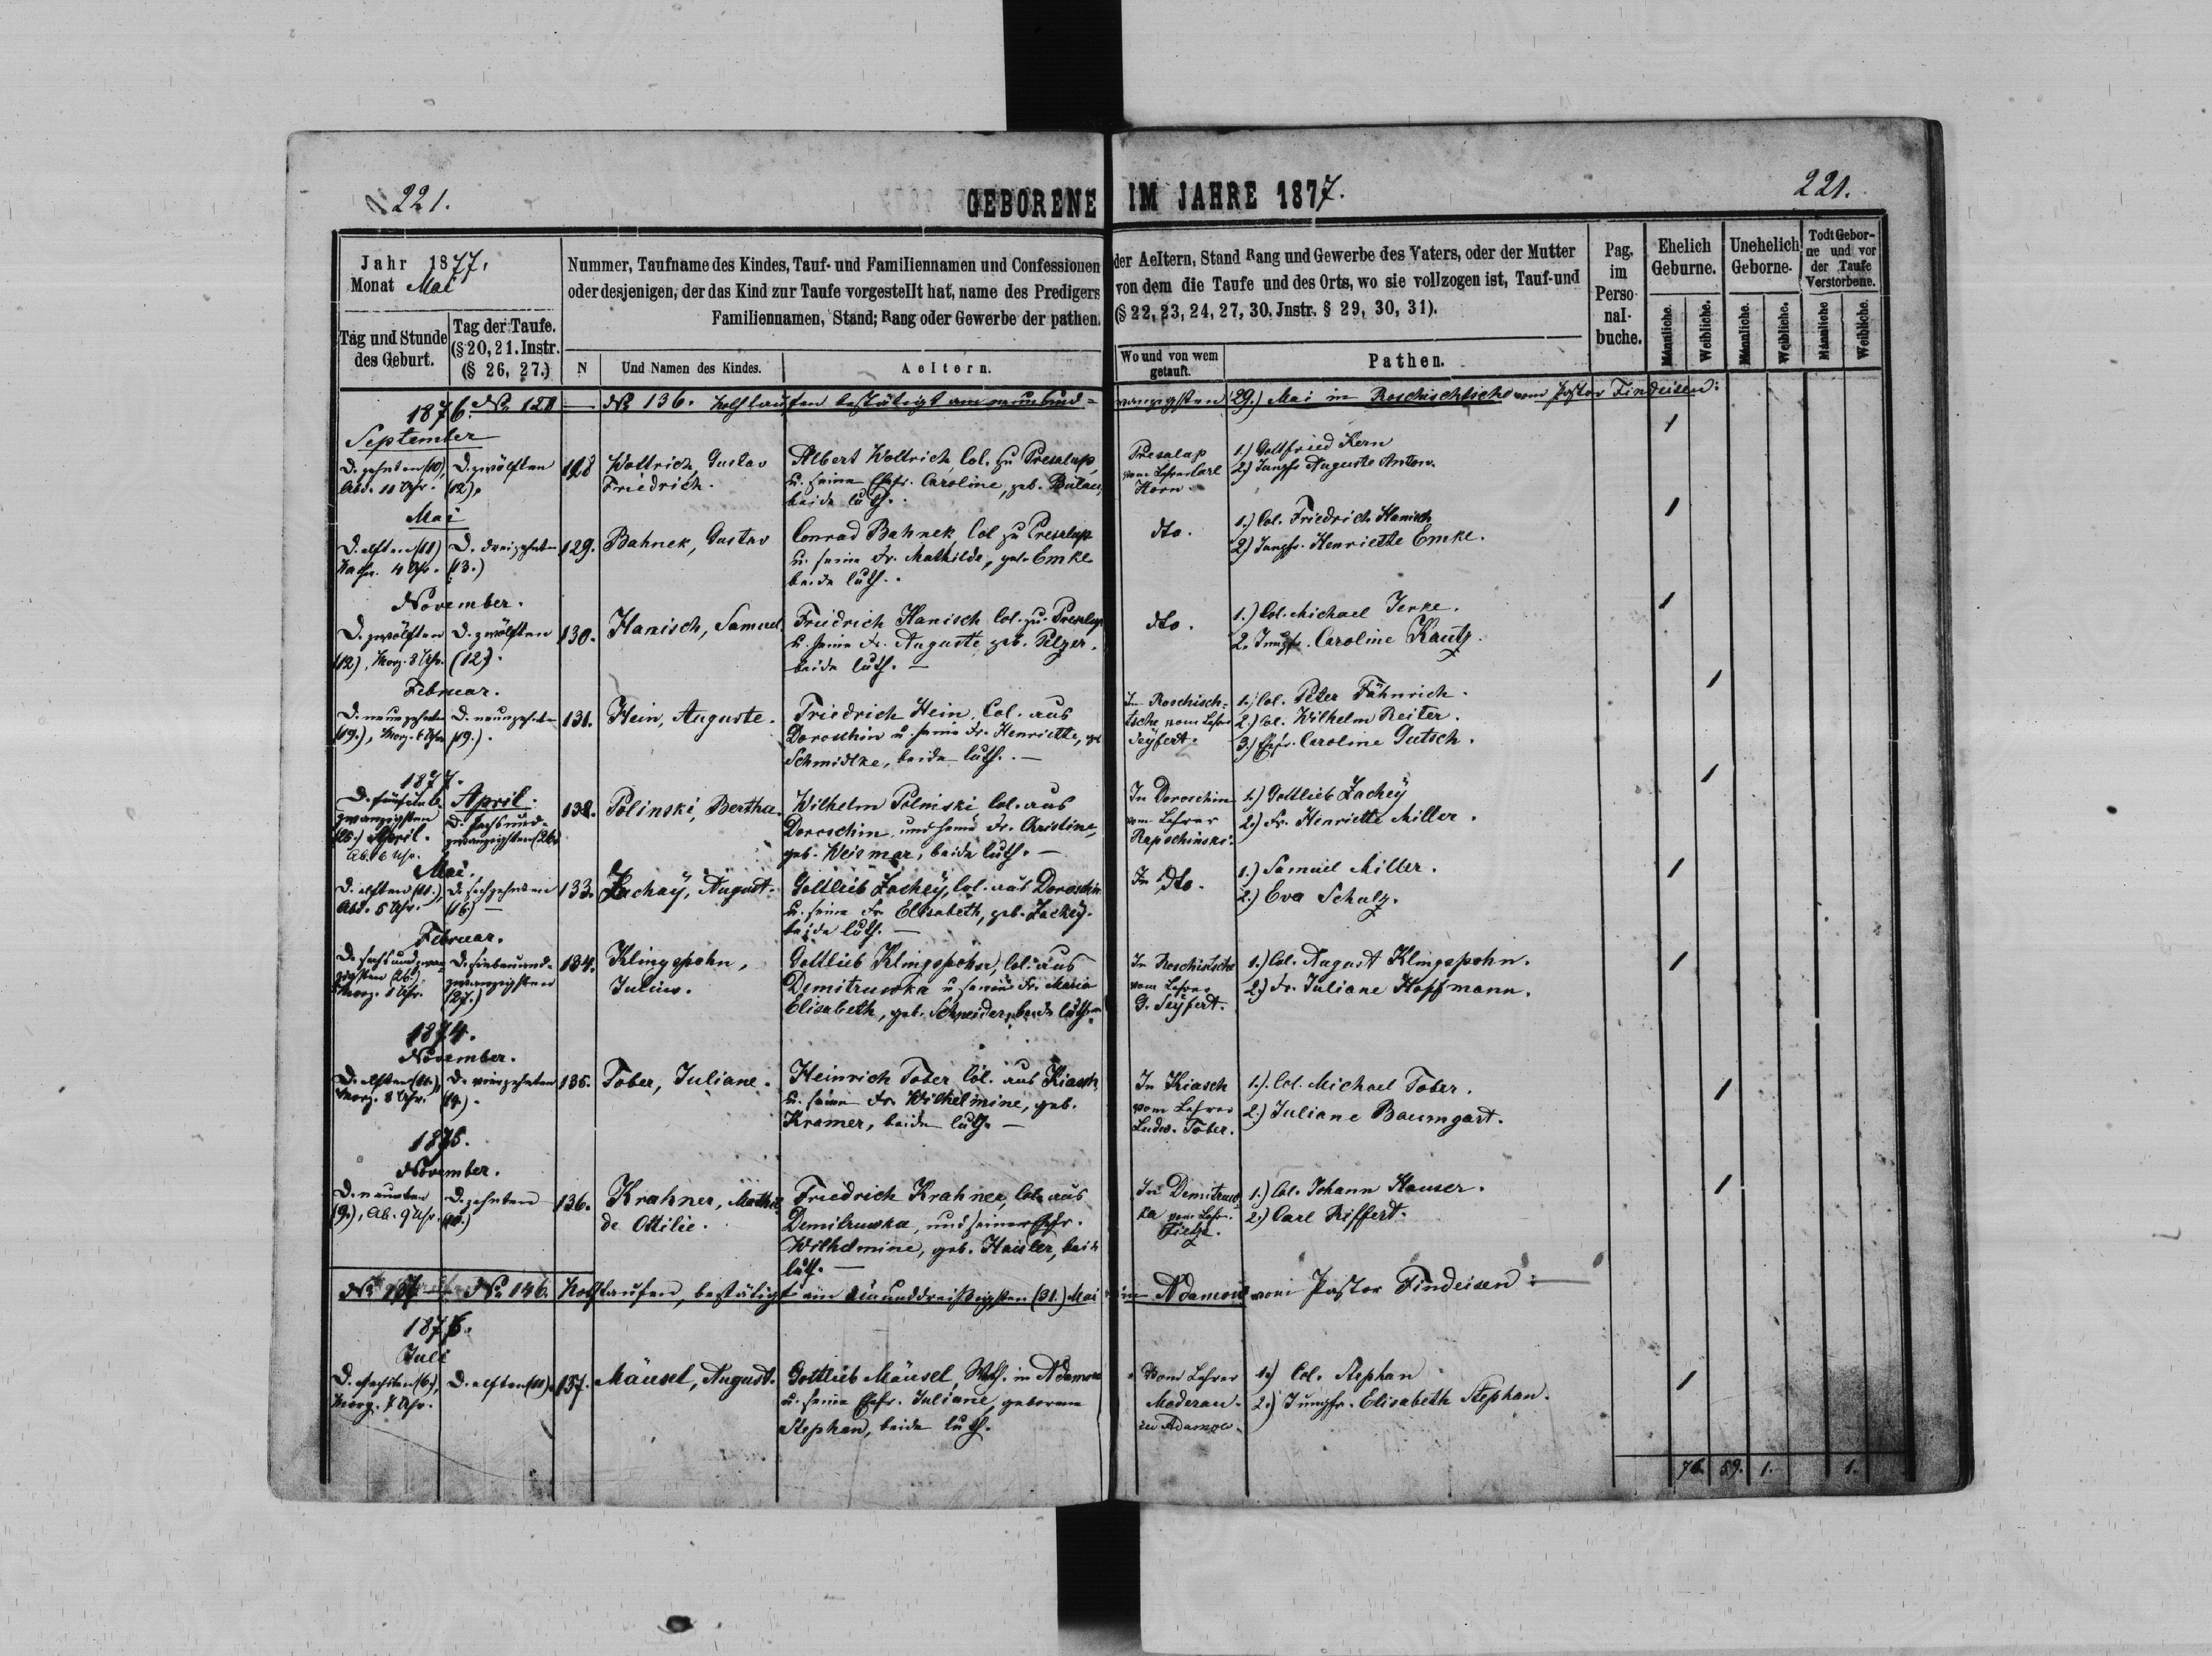 221.
GEBORENE IM JAHRE 1877.
221.
Jahr 1877,
Monat Mai
Tag und Stunde
des Geburt.
Tag der Taufe.
(§ 20, 21. Instr.
(§ 26, 27.)
Nummer, Taufname des Kindes, Tauf- und Familiennamen und Confessionen
oder desjenigen, der das Kind zur Taufe vorgestellt hat, name des Predigers
Familiennamen, Stand; Rang oder Gewerbe der pathen.
N
Und Namen des Kindes.
Aeltern.
der Aeltern, Stand Rang und Gewerbe des Vaters, oder der Mutter
von dem die Taufe und des Orts, wo sie vollzogen ist, Tauf-und
(§ 22, 23, 24, 27, 30. Jnstr. § 29, 30, 31).
Wo und von wem
getauft.
Pathen.
Pag.
im
Perso-
nal-
buche.
Ehelich
Geburne.
Unehelich
Geborne.
Todt Gebor-
ne und vor
der Taufe
Verstorbene.
Männliche.
Weibliche.
Männliche.
Weibliche.
Männliche
Weibliche.
1876. No 128 — No 136. Nothtaufen bestätigt am neunund=
zwanzigsten (29.) Mai in Roschischtsche vom Pastor Findeisen:
September
D. zehnten (10),
Abd. 11 Uhr.
D. zwölften
(12).
128
Wottrich, Gustav
Friedrich.
Albert Wottrich, Col. zu Presalup,
u. seine Ehfr. Caroline, geb.
beide luth.
Presalup
vom Lehrer Carl
Horn.
1.) Gottfried Kern
2.) Jungfr. Auguste Anton.
1
Mai
D. elften (11)
Nachm. 4 Uhr.
D. dreizehnten
(13.)
129.
Bahnek, Gustav
Conrad Bahnek, Col. zu Presalup
u. seine Fr. Mathilde, geb. Emke
beide luth.
dto.
1.) Col. Friedrich Hanisch
2.) Jungfr. Henriette Emke.
1
November.
D. zwölften
(12), Morg. 8 Uhr.
D. zwölften
(12).
130.
Hanisch, Samuel
Friedrich Hanisch Col. zu Presalup
u. seine Fr. Auguste, geb. Pelzer.
beide luth. —
dto.
1.) Col. Michael Jerke.
2. Jungfr. Caroline Kautz.
1
Februar.
D. neunzehnten
(19.), Morg. 6 Uhr
D. neunzehnten
(19.).
131.
Hein, Auguste.
Friedrich Hein, Col. aus
Doroschin u. seine Fr. Henriette, geb
Schmidtke, beide luth. —
In Roschisch=
tsche vom Lehrer
Seyfert.
1.) Col. Peter Fähnrich.
2.) Col. Wilhelm Reiter.
3.) Ehfr. Caroline Gutsch.
1
1877.
D. fünfund-
zwanzigsten
(25.) April.
Ab. 6 Uhr.
April.
D. sechsund-
zwanzigsten (26.
132.
Polinski, Bertha.
Wilhelm Polinski Col. aus
Doroschin und seine Fr. Christine,
geb. Weismar, beide luth. —
In Doroschin
vom Lehrer
Rapschinski.
1.) Gottlieb Zachey
2.) Fr. Henriette Miller.
1
Mai.
D. elften (11.),
Abd. 5 Uhr.
D. sechzehnten
(16) —
133.
Zachaÿ, August.
Gottlieb Zachey, Col. aus Doroschin
u. seine Fr. Elisabeth, geb. Zachey.
beide luth. —
In dto.
1.) Samuel Miller.
2.) Eva Schulz.
1
Februar.
D. sechsundzwan-
zigsten (26.)
Morg. 8 Uhr.
D. siebenund-
zwanzigsten
(27.)
134.
Klingspohn,
Julius.
Gottlieb Klingspohn, Col. aus
Demitruwka u. seine Fr. Maria
Elisabeth, geb. Schneider, beide luth.
In Roschischtsche
vom Lehrer
G. Seyfert.
1.) Col. August Klingspohn.
2.) Fr. Juliane Hoffmann.
1
1874.
November.
D. elften (11.),
Morg. 8 Uhr.
D. vierzehnten
(14).
135.
Tober, Juliane.
Heinrich Tober, Col. aus Kiasch
u. seine Fr. Wilhelmine, geb.
Kramer, beide luth. —
In Kiasch
vom Lehrer
Ludw. Tober.
1.). Col. Michael Tober.
2.) Juliane Baumgart.
1
1875.
November.
D. neunten
(9.), Ab. 9 Uhr.
D. zehnten
(10.)
136.
Krahner, Mathil
de Ottilie.
Friedrich Krahner, Col. aus
Demitruwka, und seiner Ehfr.
Wilhelmine, geb. Hausler, beide
luth. —
In Demitruw
ka vom Lehr.
Tietze.
1.) Col. Johann Hauser.
2.) Carl Riffert.
1
No 137 — No 146. Nothtaufen, bestätigt am einunddreißigsten (31.) Mai in Adamow vom Pastor Findeisen: —
1876.
Juli
D. sechsten (6.),
Morg. 7 Uhr.
D. elften (11).
137.
Mäusel, August.
Gottlieb Mäusel, in Adamow
u. seine Ehfr. Juliane, geborene
Stephan, beide luth.
Vom Lehrer
Maderau.
zu Adamow.
1.) Col. Stephan
2.) Jungfr. Elisabeth Stephan.
1
76. 59. 1. 1.